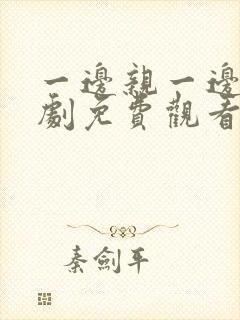 一邊親一邊
劇免費觀看
秦劍平